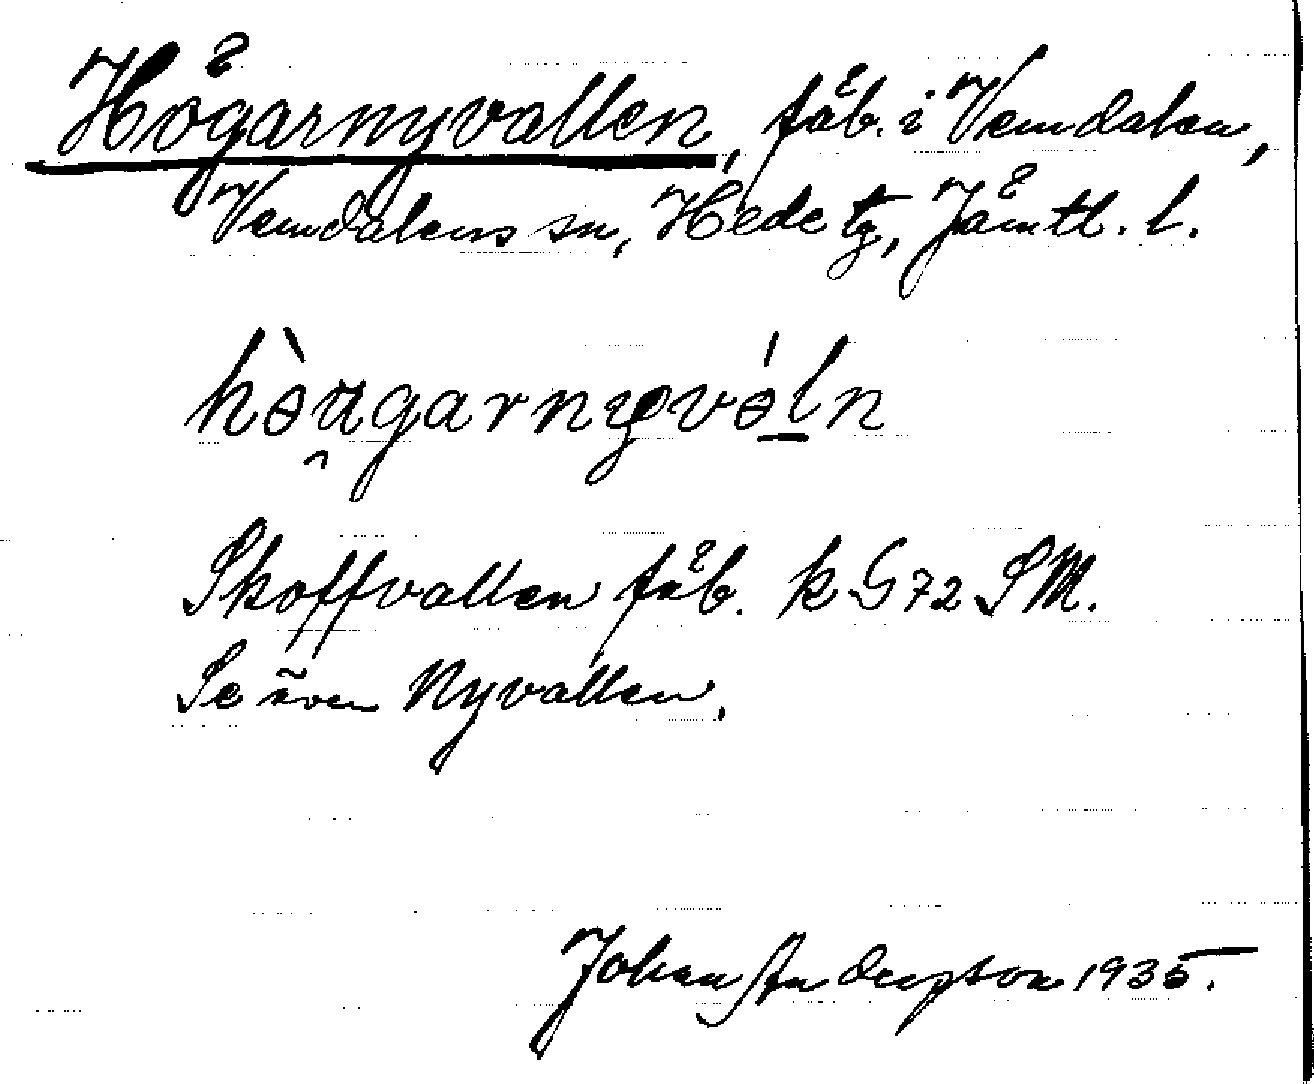 Högarnyvallen, fäb. i Vemdalen,
Vemdalens sn, Hede tg, Jämtl. l.
hə̀u̯garnyvə́ln
Skoffvallen fäb. k G72 SM.
Se även Nyvallen.
Johan Andersson 1935.